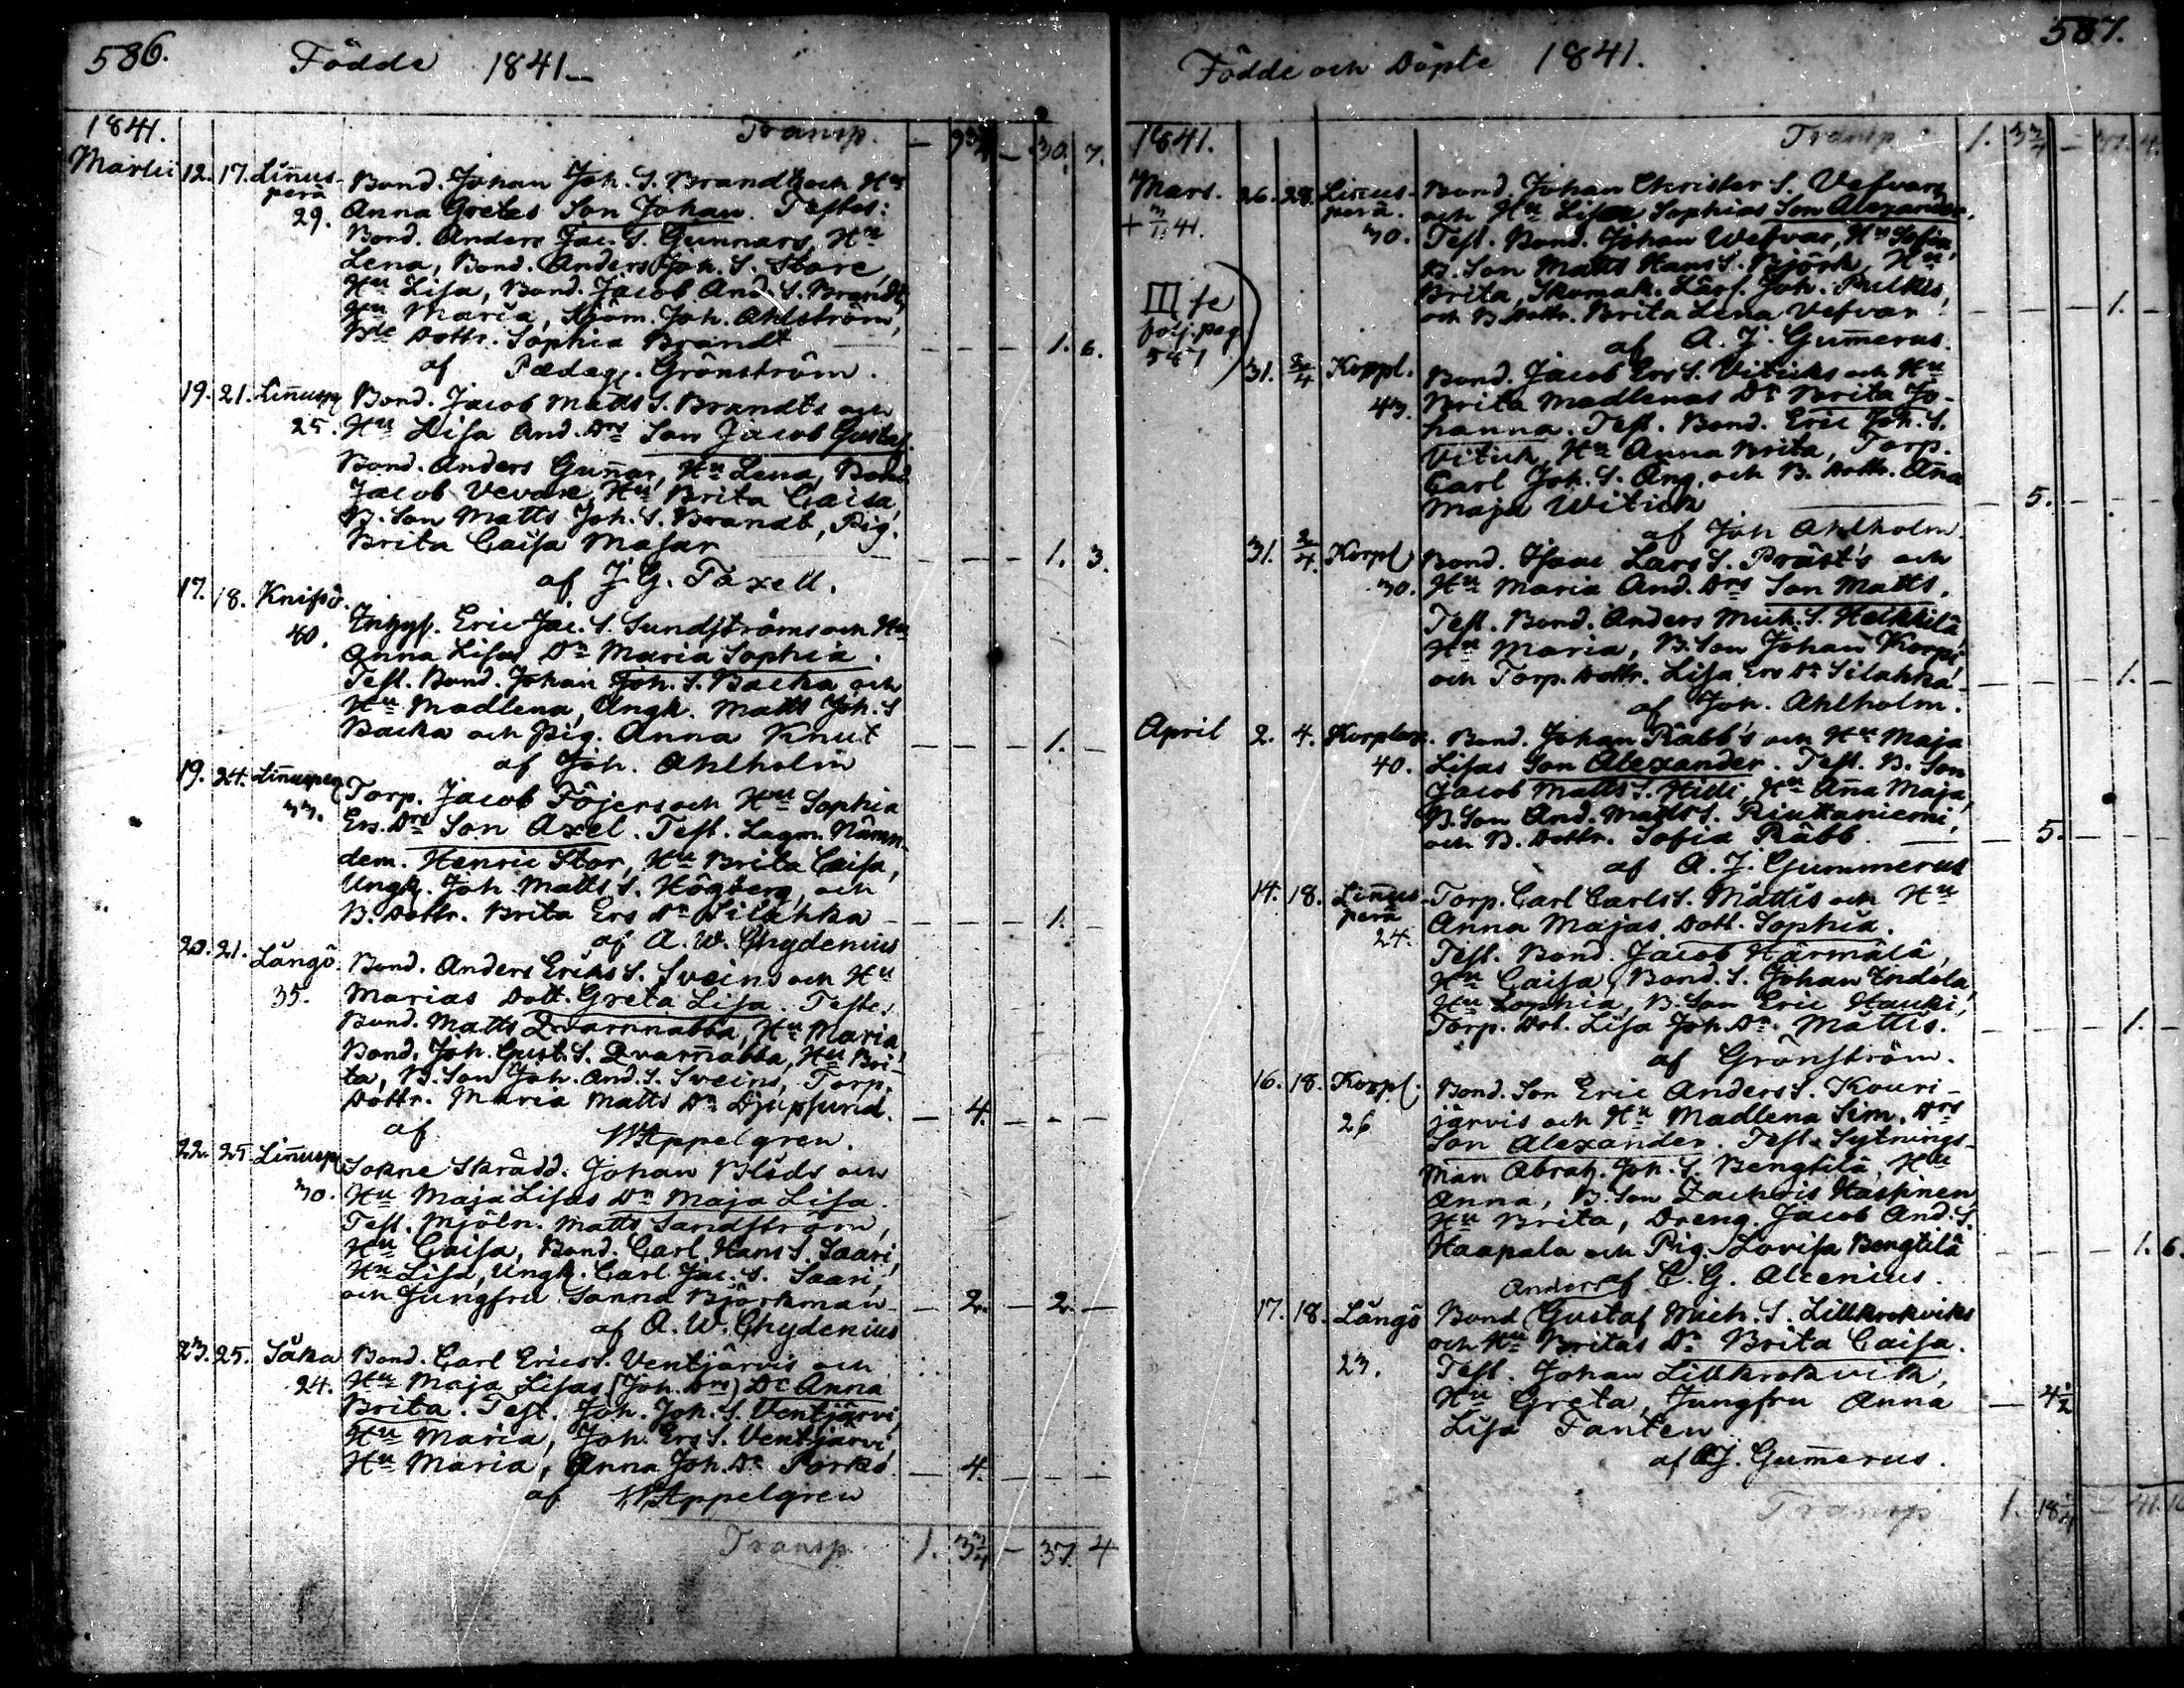 586.
Födde 1841.
1841.
Transp. — 9 3/4 — 30. 7.
Martii 12. 17. Linus- Bond. Johan Joh. S. Brandt och Hu
perä
29. Anna Gretas Son Johan. Testes:
Bond. Anders Jac. S. Gunnars, Hu
Lena, Bond. Anders Joh. S. Store,
Hu Lisa, Bond. Jacob And. S. Brandt,
Hu Maria, Sjöm. Joh. Ahlström,
Bde Dottr. Sophia Brandt — — — 1. 6.
af Pædag. Grönström.
19. 21. Linusp Bond. Jacob Matts S. Brandts och
25. Hu Lisa And. Drs Son Jacob Gustaf.
Bond. Anders Gunar, Hu Lena, Bond.
Jacob Vevare, Hu Brita Caisa,
B. Son Matts Joh. S. Brandt, Pig.
Brita Caisa Masar — — — 1. 3.
af J. G. Taxell.
17. 18. Knifsö.
40. Inhys. Eric Jac. S. Sundströms och Hu
Anna Lisas Dr Maria Sophia.
Test. Bond. Johan Joh. S. Backa och
Hu Madlena, Ungk. Matts Joh. S
Backa och Pig. Anna Knut — — — 1. —
af Joh. Ahlholm
19. 24. Linusper Torp. Jacob Töjers och Hu Sophia
33. Ers. Drs Son Axel. Test. Lagm. Nämn-
dem. Henric Stor, Hu Brita Caisa,
Ungk. Joh. Matts S. Högberg, och
B. Dottr. Brita Ers Dr Silahka — — — 1. —
af A. W. Chydenius
20. 21. Långö. Bond. Anders Eriks S. Sveins och Hu
35. Marias Dott. Greta Lisa. Testes
Bond. Matts Qvarnnabba, Hu Maria,
Bond. Joh. Gust. S. Qvarnabba, Hu Bri-
ta, B. Son Joh. And. S. Sveins, Torp.
Dottr. Maria Matts Dr Djupsund. — 4. — — —
af W Appelgren.
22. 25 Linusp Sokne Skrädd. Johan Flöds och
30. Hu Maja Lisas Dr Maja Lisa.
Test. Mjöln. Matts Sandström,
Hu Caisa, Bond. Carl Hans S. Saari,
Hu Lisa, Ungk. Carl Jac. S. Saari,
och Jungfru Sanna Björkman — 2. — 2. —
af A. W. Chydenius
23. 25. Såka Bond. Carl Erics S. Ventjärvis och
24. Hu Maja Lisas (Joh. Drs) Dr Anna
Brita. Test. Joh. Joh. S. Ventjärvi,
Hu Maria, Joh. Ers S. Ventjärvi,
Hu Maria, Anna Joh. Dr Porkö — 4 — — —
af W Appelgren
Transp 1. 3 3/4 — 37. 4
587.
Födde och Döpte 1841.
1841.
Transp 1. 3 3/4 — 37. 4.
Mars. 26. 28. Linus- Bond. Johan Christer S. Vefvars
perä. och Hu Lisa Sophias Son Alexander.
30. Test. Bond. Johan Wefvar, Hu Sofia,
B. Son Matts Hans S. Björk, Hu
Brita, Skomak. Lärl. Joh. Pulkis,
och B. Dottr. Brita Lena Vefvar — — — 1. —
af A. J. Gumerus.
III se
följ. pag
587
31. 2/4 Korpl. Bond. Jacob Ers S. Viticks och Hu
43. Brita Madlenas Dr Brita Jo-
hanna. Test. Bond. Eric Joh. S.
Vitick, Hu Anna Brita, Torp.
Carl Joh. S. Ang, och B. Dottr. Ana
Maja Witick — 5. — — —
af Joh Ahlholm.
31. 2/4. Korpl Bond. Isaac Lars S. Präst's och
30. Hu Maria And. Drs Son Matts.
Test. Bond. Anders Mich. S. Heikkilä,
Hu Maria, B. Son Johan Korpi,
och Torp. Dottr. Lisa Ers Dr Silahka — — — 1. —
af Joh. Ahlholm.
April 2. 4. Korplax. Bond. Johan Räbb's och Hu Maja
40. Lisas Son Alexander. Test. B. Son
Jacob Matts S. Hilli, Hu Ana Maja,
B. Son And. Matts S. Riuttaniemi,
och B. Dottr. Sofia Räbb. — 5. — — —
af A. J. Gummerus
14. 18. Linus- Torp. Carl Carls S. Mattis och Hu
perä Anna Majas Dott. Sophia.
24. Test. Bond. Jacob Härmälä,
Hu Caisa, Bond. S. Johan Indola,
Hu Sophia, B. Son Eric Hauki,
Torp. Dot. Lisa Joh. Dr Mattis. — — — 1. —
af Grönström.
16. 18. Korpl. Bond. Son Eric Anders S. Kouri-
26 järvis och Hu Madlena Sim. Drs
Son Alexander. Test. Sytnings-
man Abrah. Joh. S. Bengtilä, Hu
Anna, B. Son Zachris Haspinen
Hu Brita, Dreng. Jacob And. S.
Haapala och Pig. Lovisa Bengtilä — — — 1. 6.
af C. G. Alcenius.
Anders
17. 18. Långö Bond Gustaf Mich. S. Lillkrokviks
och Hu Britas Dr Brita Caisa.
23. Test. Johan Lillkrokvik,
Hu Greta, Jungfru Anna — 4 1/2
Lisa Fanten
af A J. Gumerus.
Transp 1. 18 1/4 — 41.